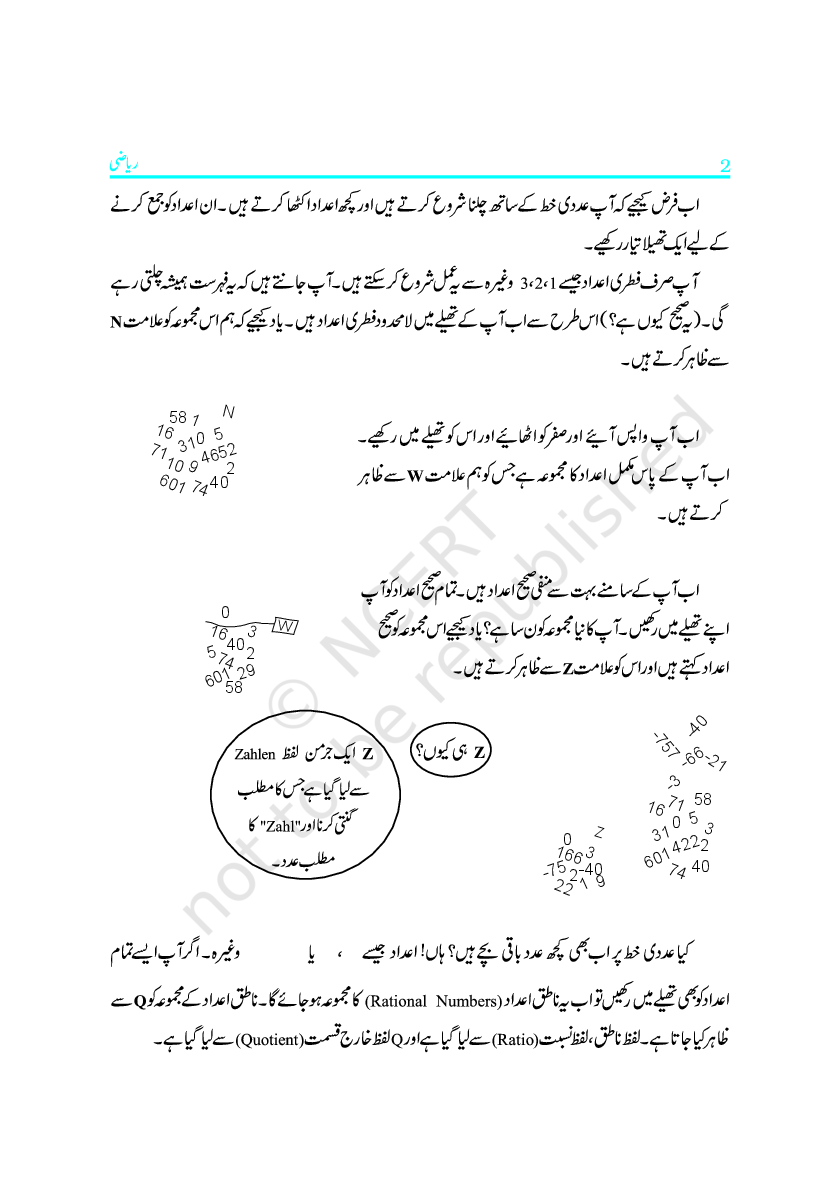 2
ریاضی
اب فرض کیجیے کہ آپ عددی خط کے ساتھ چلنا شروع کرتے ہیں اور کچھ اعداد اکٹھا کرتے ہیں۔ ان اعداد کو جمع کرنے
کے لیے ایک تھیلا تیار رکھیے۔
آپ صرف فطری اعداد جیسے 1،2،3 وغیرہ سے یہ عمل شروع کر سکتے ہیں۔ آپ جانتے ہیں کہ یہ فہرست ہمیشہ چلتی رہے
گی۔ (یہ صحیح کیوں ہے؟) اس طرح سے اب آپ کے تھیلے میں لامحدود فطری اعداد ہیں۔ یاد کیجیے کہ ہم اس مجموعہ کو علامت N
سے ظاہر کرتے ہیں۔
58 1 N
16 310 5
71 10 9 4652
2
601 74 40
اب آپ واپس آیئے اور صفر کو اٹھایئے اور اس کو تھیلے میں رکھیے۔
اب آپ کے پاس مکمل اعداد کا مجموعہ ہے جس کو ہم علامت W سے ظاہر
کرتے ہیں۔
اب آپ کے سامنے بہت سے منفی صحیح اعداد ہیں۔ تمام صحیح اعداد کو آپ
اپنے تھیلے میں رکھیں۔ آپ کا نیا مجموعہ کون سا ہے؟ یاد کیجیے اس مجموعہ کو صحیح
اعداد کہتے ہیں اور اس کو علامت Z سے ظاہر کرتے ہیں۔
0
16 3 W
40
5 74 2
601 29
58
Z ہی کیوں؟
Z ایک جرمن لفظ Zahlen
سے لیا گیا ہے جس کا مطلب
گنتی کرنا اور "Zahl" کا
مطلب عدد۔
-40
-757 -66 -21
-3
16 71 58
31 0 5 3
601 4222
74 40
0 Z
166 3
-75 2 -40
22 1 9
کیا عددی خط پر اب بھی کچھ عدد باقی بچے ہیں؟ ہاں! اعداد جیسے ، یا وغیرہ۔ اگر آپ ایسے تمام
اعداد کو بھی تھیلے میں رکھیں تو اب یہ ناطق اعداد (Rational Numbers) کا مجموعہ ہو جائے گا۔ ناطق اعداد کے مجموعہ کو Q سے
ظاہر کیا جاتا ہے۔ لفظ ناطق، لفظ نسبت (Ratio) سے لیا گیا ہے اور Q لفظ خارج قسمت (Quotient) سے لیا گیا ہے۔
© NCERT
not to be republished